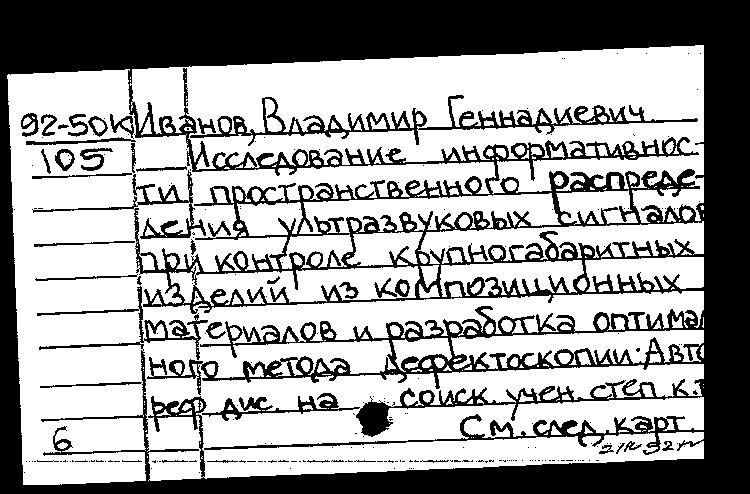 92-50К Иванов, Владимир Геннадиевич.
105 Исследование информативнос-
ти пространственного распреде-
ления ультразвуковых сигналов
при контроле крупногабаритных
изделий из композиционных
материалов и разработка оптимал
ного метода дефектоскопии: Авто
реф дис. на соиск. учен. степ. к.т
См. след. карт.
6